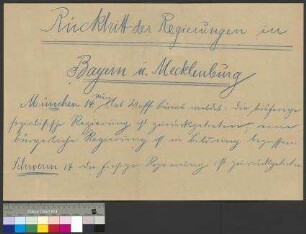 Rücktritt der Regierungen in
Bayern u. Mecklenburg
München 14. Wolff büro meldet: die bisherige
sozialistische Regierung ist zurückgetreten, eine
bürgerliche Regierung ist in bildung begriffen.
Schwerin 14 die hiesige Regierung ist zurückgetreten